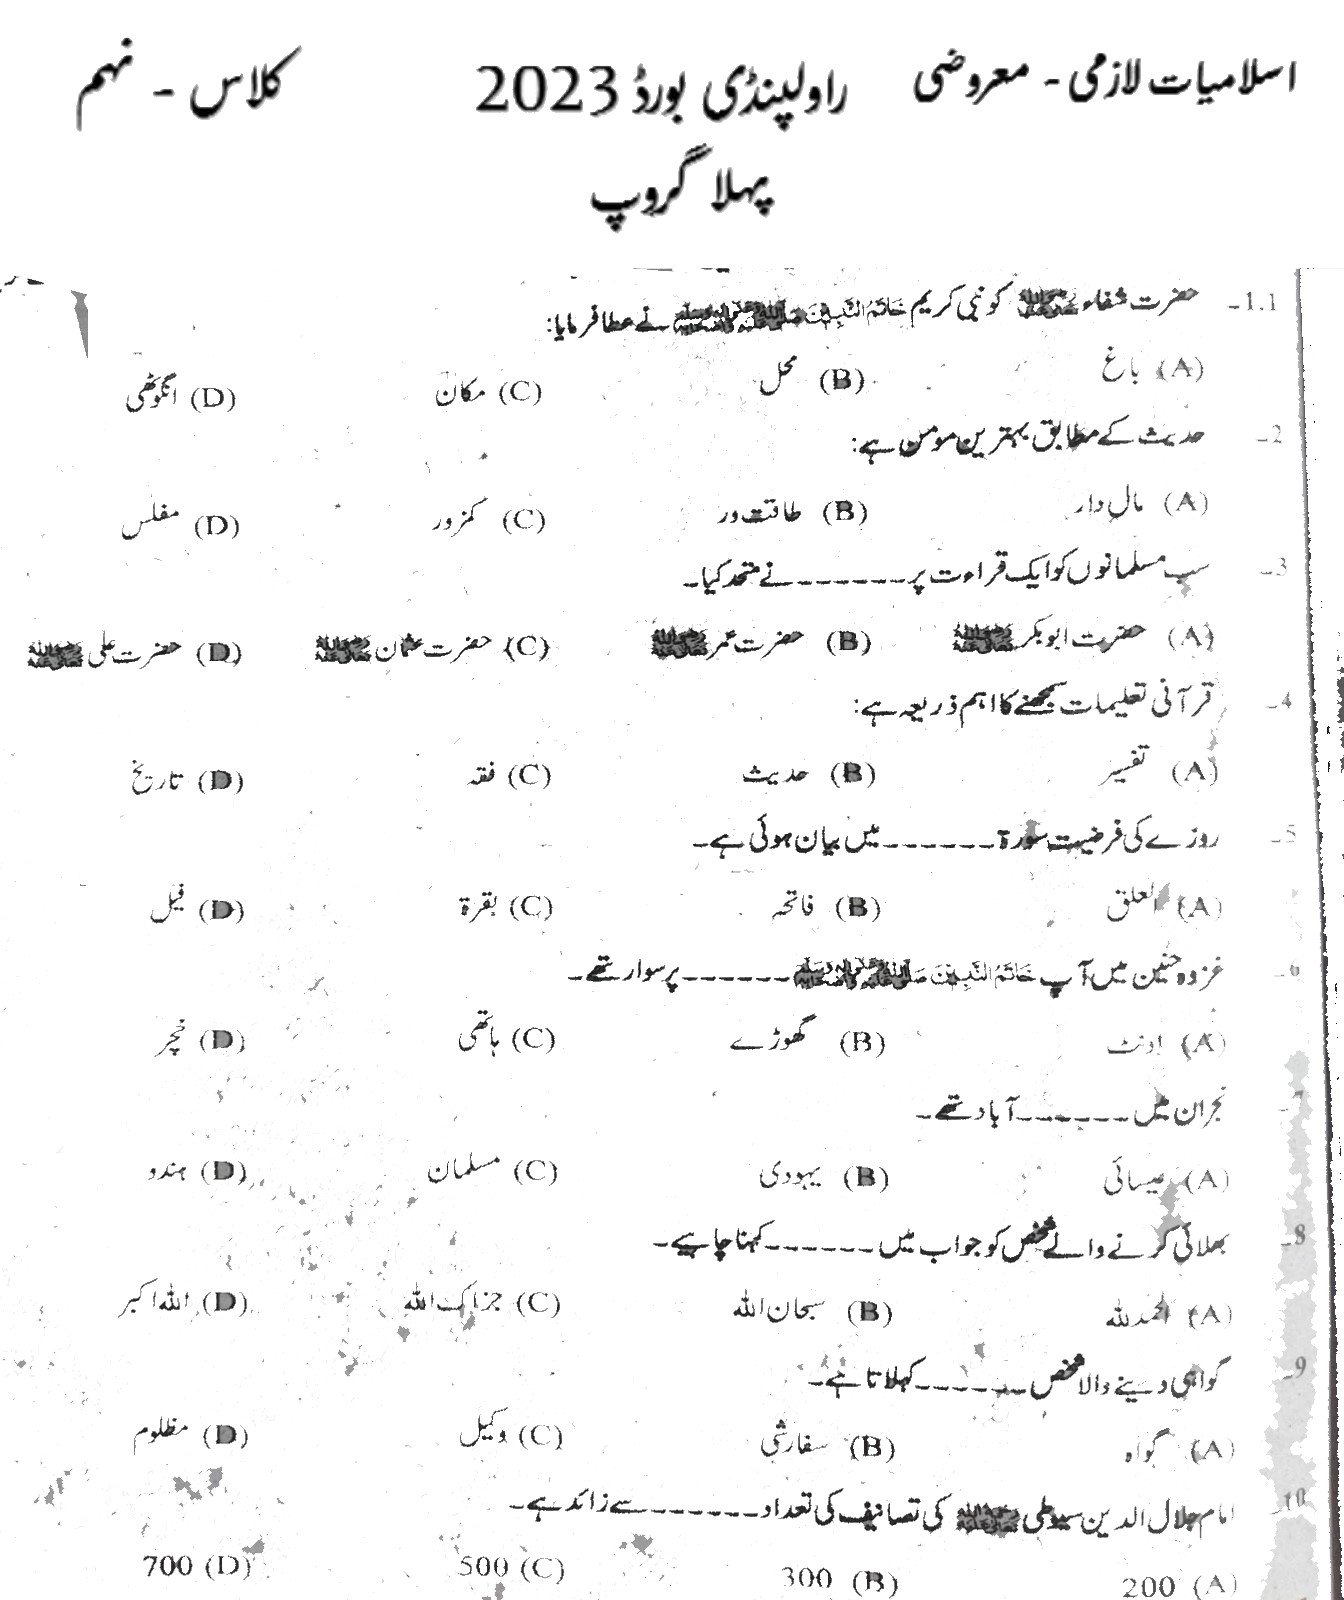 اسلامیات لازمی - معروضی راولپنڈی بورڈ 2023 کلاس - نہم
پہلا گروپ
1.1- حضرت شفاء کو نبی کریم خَاتَمُ النَّبِيِّنَ صلی اللہ علیہ وعلی آلہ واصحابہ وسلم نے عطا فرمایا:
(A) باغ (B) محل (C) مکان (D) انگوٹھی
2- حدیث کے مطابق بہترین مومن ہے:
(A) مال دار (B) طاقت ور (C) کمزور (D) مفلس
3- سب مسلمانوں کو ایک قراءت پر ------- نے متحد کیا۔
(A) حضرت ابوبکر (B) حضرت عمر (C) حضرت عثمان (D) حضرت علی
4- قرآنی تعلیمات سمجھنے کا اہم ذریعہ ہے:
(A) تفسیر (B) حدیث (C) فقہ (D) تاریخ
5- روزے کی فرضیت سورۃ ------ میں بیان ہوئی ہے۔
(A) العلق (B) فاتحہ (C) بقرۃ (D) فیل
6- غزوہ حنین میں آپ خَاتَمُ النَّبِيِّنَ صلی اللہ علیہ وعلی آلہ واصحابہ وسلم ------ پر سوار تھے۔
(A) اونٹ (B) گھوڑے (C) ہاتھی (D) خچر
7- نجران میں ------ آباد تھے۔
(A) عیسائی (B) یہودی (C) مسلمان (D) ہندو
8- بھلائی کرنے والے شخص کو جواب میں ------ کہنا چاہیے۔
(A) الحمدللہ (B) سبحان اللہ (C) جزاک اللہ (D) اللہ اکبر
9- گواہی دینے والا شخص ------ کہلاتا ہے۔
(A) گواہ (B) سفارشی (C) وکیل (D) مظلوم
10- امام جلال الدین سیوطی کی تصانیف کی تعداد ------ سے زائد ہے۔
(A) 200 (B) 300 (C) 500 (D) 700